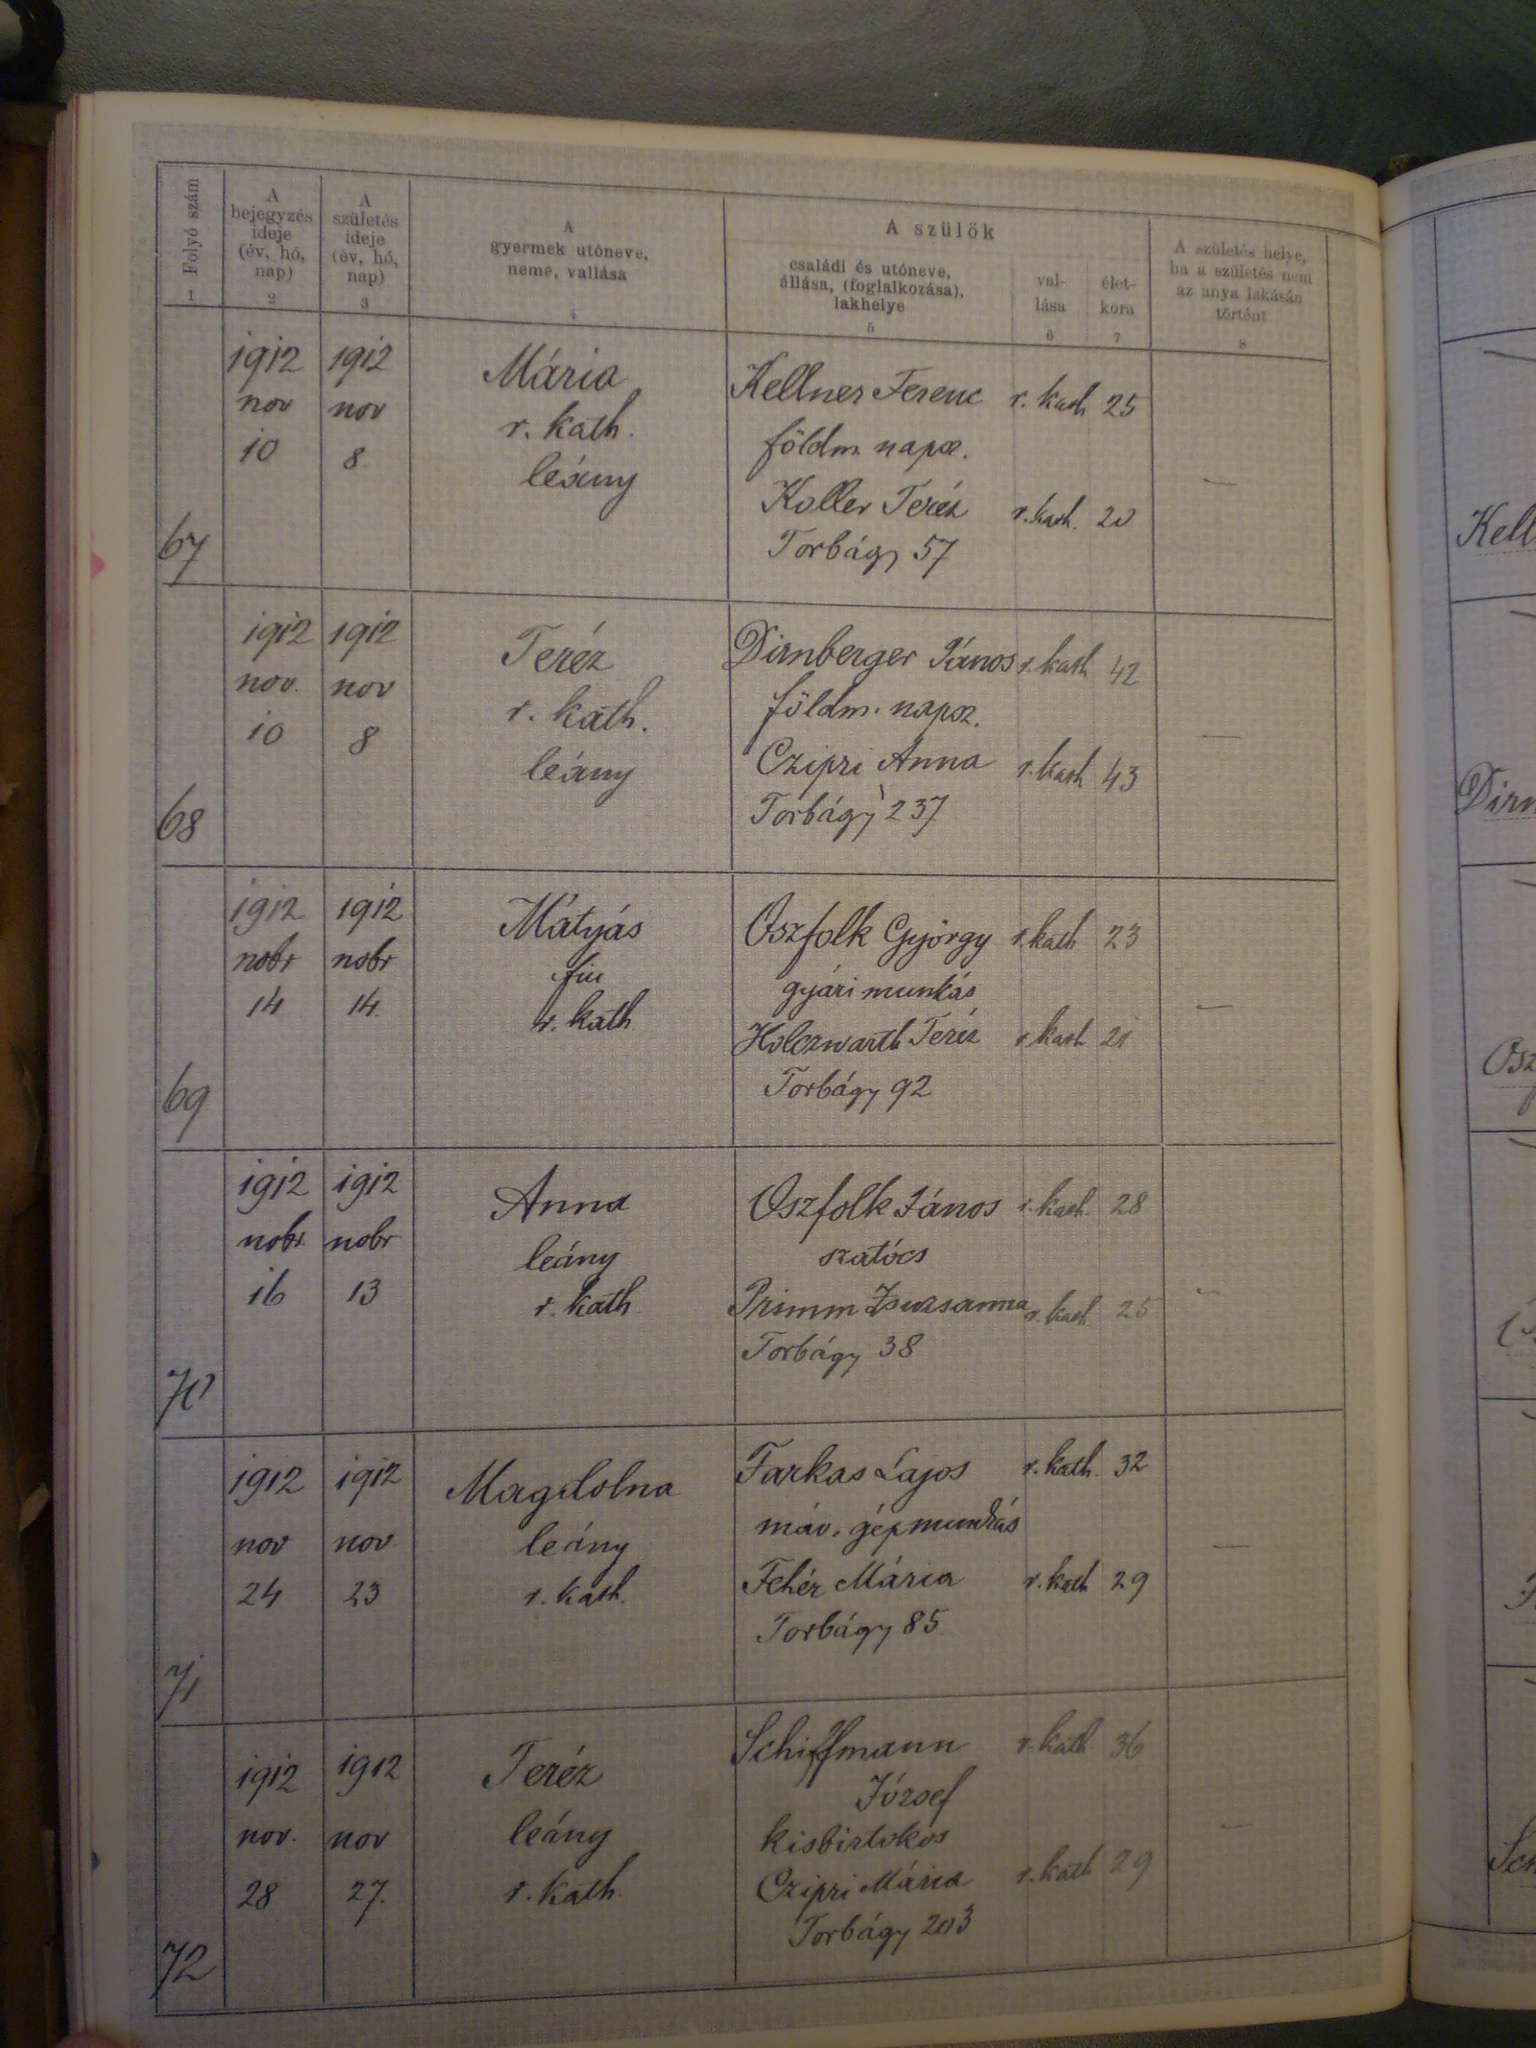 Folyó szám
1
A
bejegyzés
ideje
(év, hó,
nap)
2
A
születés
ideje
(év, hó,
nap)
3
A
gyermek utóneve,
neme, vallása
4
A szülők
családi és utóneve,
állása, (foglalkozása),
lakhelye
5
val-
lása
6
élet-
kora
7
A születés helye,
ha a születés nem
az anya lakásán
történt
8
67
1912
nov
10
1912
nov
8.
Mária
r. kath.
leány
Kellner Ferenc r. kath 25
földm. napsz.
Koller Teréz r. kath. 20
Torbágy 57
—
68
1912
nov.
10
1912
nov
8
Teréz
r. kath.
leány
Dirnberger János r. kath 42
földm. napsz.
Czipri Anna r. kath 43
Torbágy 237
—
69
1912
nobr
14
1912
nobr
14.
Mátyás
fiu
r. kath
Oszfolk György r. kath 23
gyári munkás
Holczwarth Teréz r. kath 21
Torbágy 92
—
70
1912
nobr.
16
1912
nobr
13
Anna
leány
r. kath.
Oszfolk János r. kath. 28
szatócs
Primm Zsuzsanna r. kath. 25
Torbágy 38
—
71
1912
nov
24
1912
nov.
23
Magdolna
leány
r. kath.
Farkas Lajos r. kath. 32
máv. gépmunkás
Fehér Mária r. kath 29
Torbágy 85.
—
72
1912
nov.
28
1912
nov
27.
Teréz
leány
r. kath.
Schiffmann r. kath. 36
József
kisbirtokos
Czipri Mária r. kath 29
Torbágy 203
—
Kell
Dirn
Osz
Sch